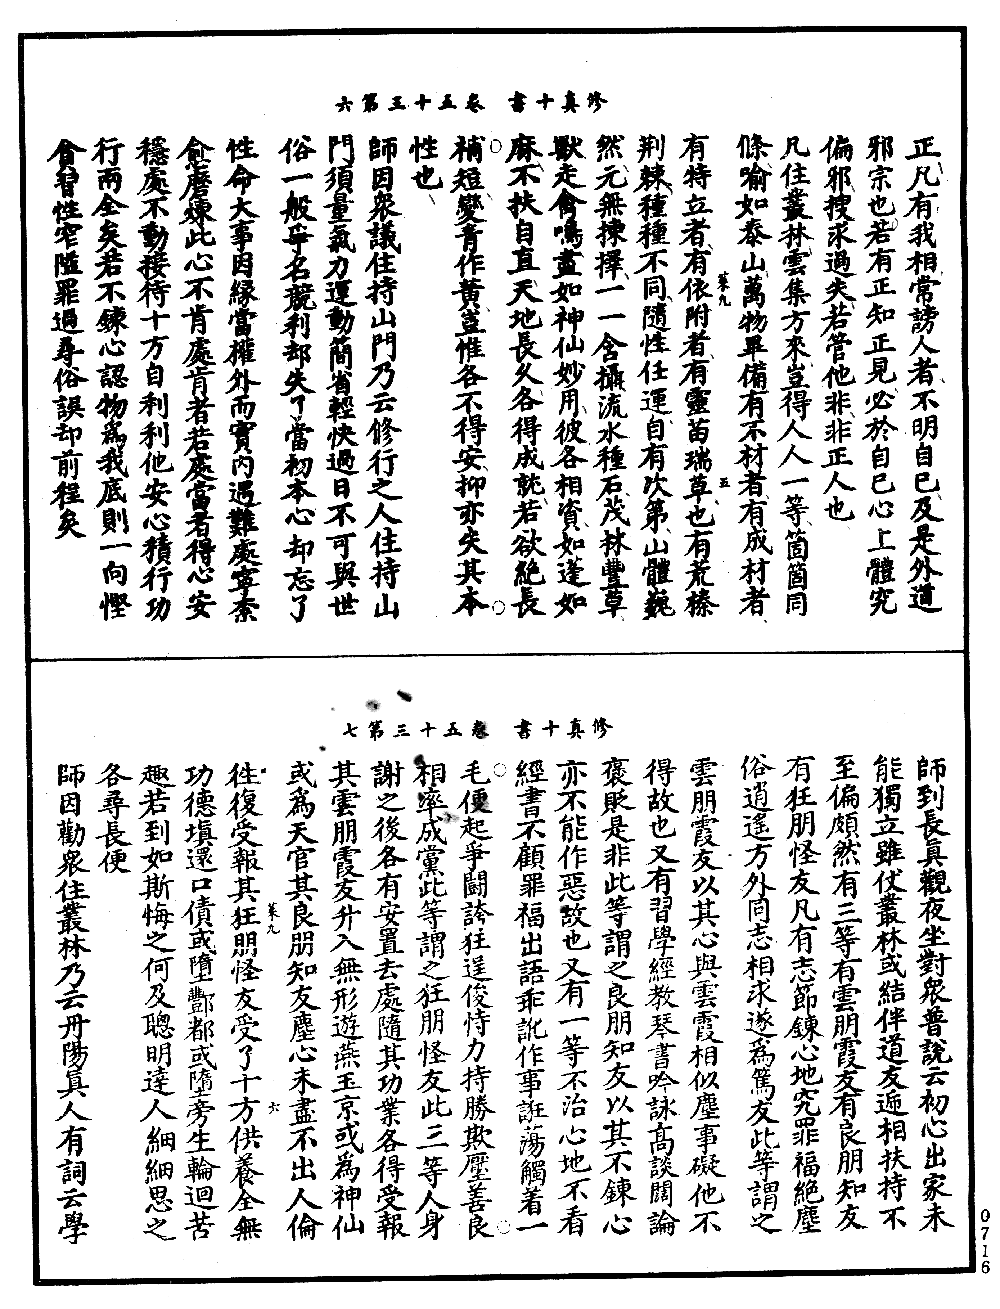 修真十書　卷五十三第六
正凡有我相常謗人者不明自己及是外道
邪宗也若有正知正見必於自己心上體究
偏邪搜求過失若管他非非正人也
凡住叢林雲集方來豈得人人一等箇箇同
條喻如泰山萬物畢備有不材者有成材者
菜九　五
有特立者有依附者有靈苗瑞草也有荒榛
荆棘種種不同隨性任運自有次第山體巍
然元無揀擇一一含攝流水種石茂林豐草
獸走禽鳴盡如神仙妙用彼各相資如蓬如
麻不扶自直天地長久各得成就若欲絕長
補短變青作黃豈惟各不得安抑亦失其本
性也
師因衆議住持山門乃云修行之人住持山
門須量氣力運動簡省輕快過日不可與世
俗一般爭名競利却失了當初本心却忘了
性命大事因緣當權外而實內遇難處寧柰
愈磨煉此心不肯處肯者若處當者得心安
穩處不動接待十方自利利他安心積行功
行兩全矣若不鍊心認物爲我底則一向慳
貪習性窄隘罪過尋俗誤却前程矣
修真十書　卷五十三第七
師到長眞觀夜坐對衆普說云初心出家未
能獨立雖仗叢林或結伴道友遞相扶持不
至偏頗然有三等有雲朋霞友有良朋知友
有狂朋怪友凡有志節鍊心地究罪福絕塵
俗逍遙方外同志相求遂爲篤友此等謂之
雲朋霞友以其心與雲霞相似塵事礙他不
得故也又有習學經教琴書吟詠高談闊論
褒貶是非此等謂之良朋知友以其不鍊心
亦不能作惡故也又有一等不治心地不看
經書不顧罪福出語乖訛作事誑蕩觸着一
毛便起爭鬭誇狂逞俊恃力持勝欺壓善良
相率成黨此等謂之狂朋怪友此三等人身
謝之後各有安置去處隨其功業各得受報
其雲朋霞友升入無形遊燕玉京或爲神仙
或爲天官其良朋知友塵心未盡不出人倫
菜九　六
徃復受報其狂朋怪友受了十方供養全無
功德塡還口債或墮酆都或墮旁生輪迴苦
趣若到如斯悔之何及聰明達人細細思之
各尋長便
師因勸衆住叢林乃云丹陽眞人有詞云學
0716